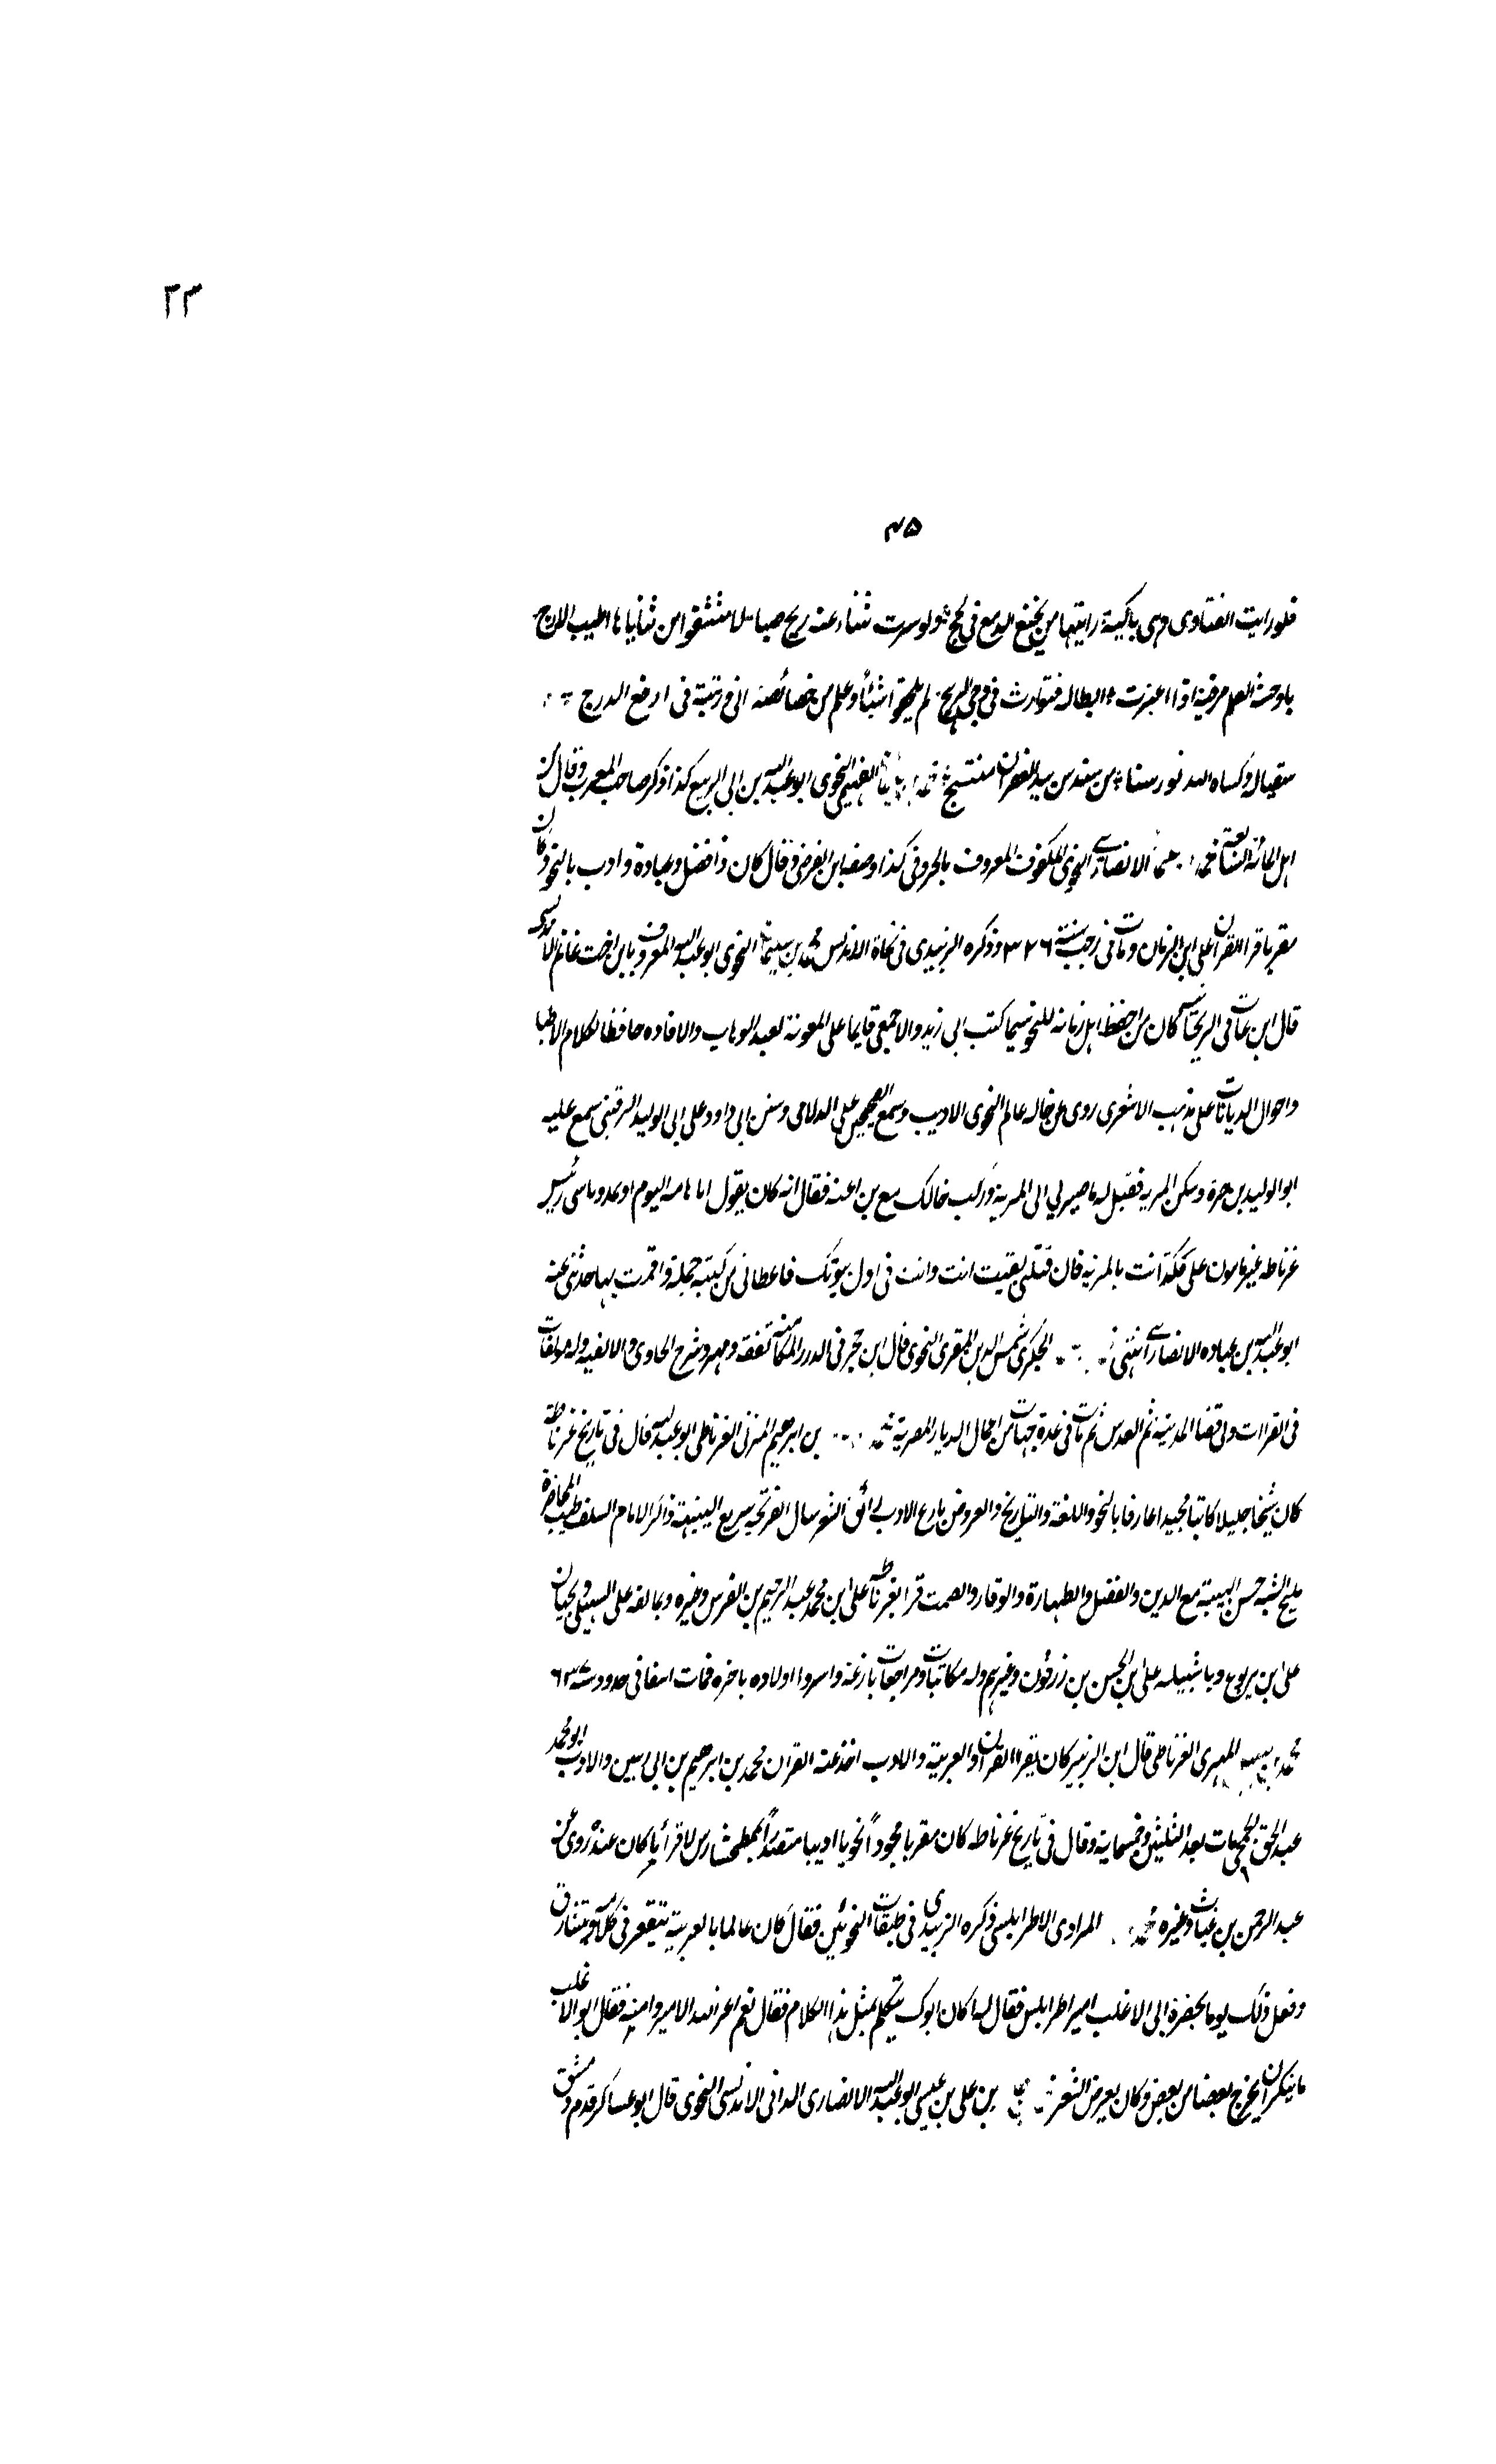 ٢٣
٤٥
فلو رايت الفتاوى وهى باكية رايتها من نجيع الدمع فى لجج ولو سرت ثناء عنه ريح صبا لاستنشقوا من ثناياها اطيب الارج
يا وحشة العلم من فيه اذا اعتبرت البطاله فتوارت فى دجى الرهج لم يلحقوا شيئا وعلم من خصائصه انى ورتبته فى ارفع الدرج
سقيا له وكساه الله نور سناء من سندس بيد الغفران منتسج محمد بن النحوى ابو عبد الله بن ابى الربيع كذا ذكر صاحب المغرب وقال من
اهل المائة السابعة محمد بن الانصارى النحوى المكفوف المعروف بالحروفى كذا وصفه ابن الفرضى وقال كان ذا فضل وعبادة وادب بالنحو وكان
مقريا قرا القران على ابن الزمان ومات فى رجب سنة ٣٢٦ وذكره الزبيدى فى نحاة الاندلس محمد بن سليمان النحوى ابو عبد الله المعروف بابن اخت غانم الاندلسى
قال ابن عات فى الريحانة كان من احفظ اهل زمانه للنحو سيما كتب ابى زيد والاصمعى قايما على المعونة لعبد الوهاب والافاده حافظا لكلام الاطبا
واحوال الديانات على مذهب الاشعرى روى عن خاله عالم النحوى الاديب وسمع الصحيحين على الدلامى وسنن ابى داود على ابى الوليد الوقشى سمع عليه
ابو الوليد بن حره وسكن المريه فقيل له ما صيرك الى المرية وركب خالك مع بن اعنه فقال انه كان يقول اما هامه اليوم او غد وباسى رئيس
غرناطه غير مامون على فكذا انت بالمريه فان قتلنى بقيت انت وانت فى اول بيوتك فاعطانى من كتبه جملة واقمت بها حدثنى عنه
ابو عبد الله بن عباده الانصارى انتهى الحكرى شمس الدين المقرى النحوى قال ابن حجر فى الدرر الكامنة تفقه ومهر وشرح الحاوى والالفيه وله مولفات
فى القراات ولى قضا المدينه ثم القدس ثم مات فى عدة جهات من اعمال الديار المصرية بن ابرهيم المزنى الغرناطى ابو عبد الله قال فى تاريخ غرناطه
كان شيخا جليلا كاتبا مجيدا عارفا بالنحو واللغة والتاريخ والعروض بارع الادب رائق الشعر سال القريحه سريع البديهة ذاكر الايام السلف طيب المحاضرة
مليح الشيبه حسن الهيبة مع الدين والفضل والطهارة والوقار والصمت قرا بغرناطه على ابن محمد عبد الرحيم بن الفرس وغيره وبمالقه على السهيلى وبجيان
على ابن يربوع وباشبيله على ابن الحسن بن زرقون وغيرهم وله مكاتبات ومراجعات بازغة واسروا اولاده باخره فمات اسفا فى حدود سنة ٦٣
محمد بن المهرى الغرناطى قال ابن الزبير كان يقرا القران والعربية والادب اخذ عنه القران محمد بن ابرهيم بن ابى زمنين والادب ابو محمد
عبد الحق الجمحى مات بعد الثلثين وخمسماية وقال فى تاريخ غرناطه كان مقريا مجودا نحويا اديبا متصدرا بمطخشارش لاقرا ما كان عنده روى عن
عبد الرحمن بن غياث وغيره محمد المرادى الاطرابلسى ذكره الزبيدى فى طبقات النحوئين فقال كان عالما بالعربية يتقعر فى كلامه ويتفارق
وفعل ذلك يوما بحضرة ابى الاغلب امير اطرابلس فقال له اكان ابوك يتكلم بمثل هذا الكلام فقال نعم اعز الله الامير وامه فقال ابو الاغلب
ما ينكر ان يخرج بغيضا من بغيض وكان يعرض الشعر محمد بن على بن عيسى ابو عبد الله الانصارى الدانى الاندلسى النحوى قال ابو عساكر قدم دمشق